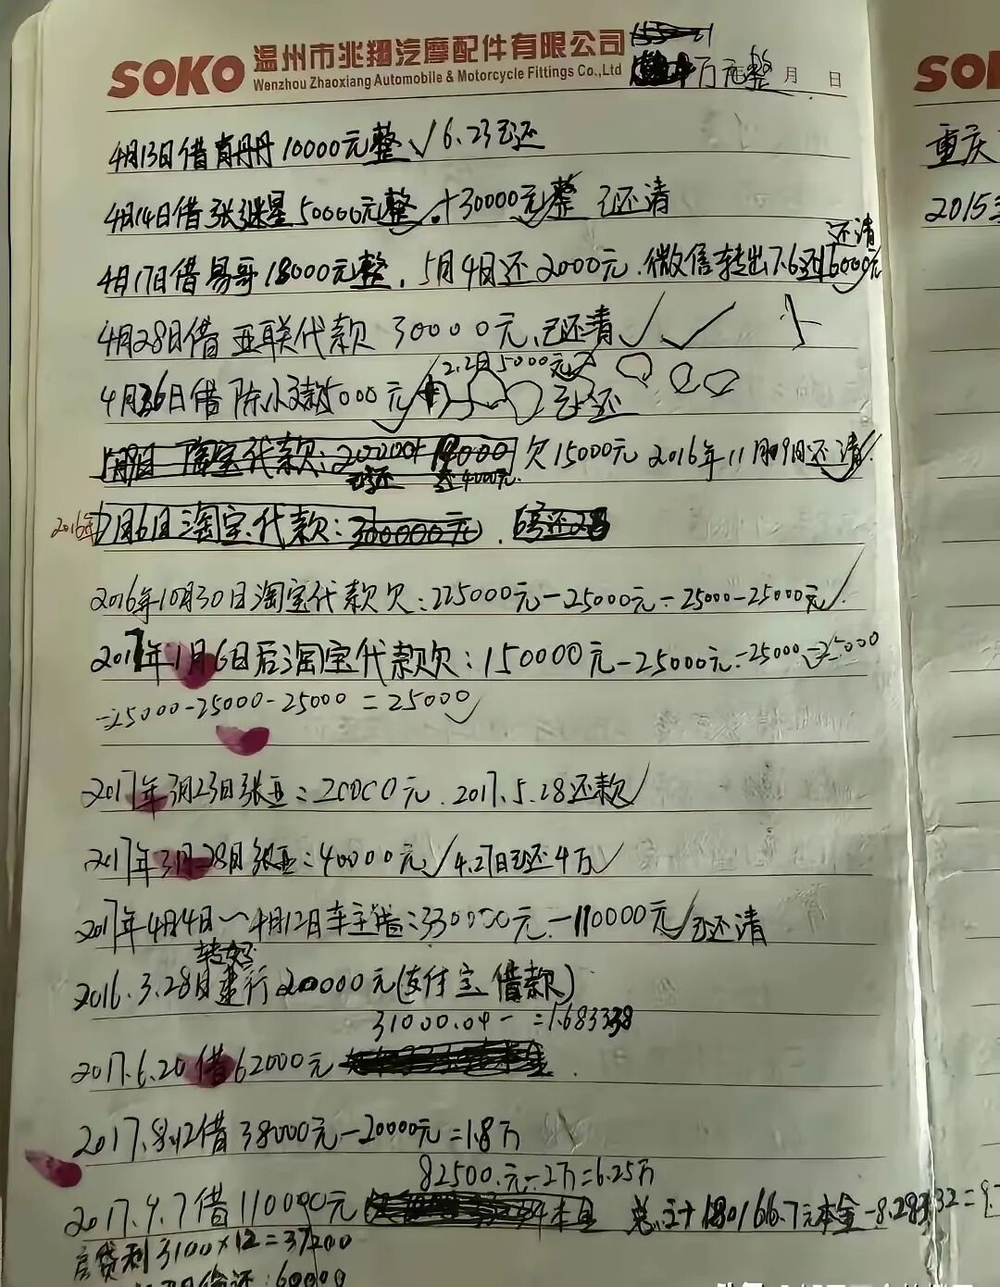 SOKO 温州市兆翔汽摩配件有限公司
Wenzhou Zhaoxiang Automobile & Motorcycle Fittings Co.,Ltd
万元整 月 日
4月13日借 丹丹10000元整√6.23已还
4月14日借张 星50000元整+30000元整 已还清
还清
4月17日借易哥18000元整,5月4日还2000元.微信转出7.6还16000元
4月28日借亚联代款30000元,已还清√√
2.2月5000元
4月 6日借陈小 款5000元 已还
淘宝代款: 欠15000元 2016年11月9日还清√
还4000元
2016年7月6日淘宝代款:300000元.
2016年10月30日淘宝代款欠:225000元-25000元-25000-25000元√
2017年1月6日后淘宝代款欠:150000元-25000元-25000-25000
-25000-25000-25000=25000√
2017年3月23日张亚:20000元.2017.5.28还款√
2017年3月28日张亚:40000元√4.27日已还4万√
2017年4月4日~4月12日车主借:330000元-110000元√已还清
2016.3.28日建行200000元(支付宝借款)
31000.04- =1.683338
2017.6.20借62000元
2017.8.12借38000元-20000元=1.8万
82500.元-2万=6.25万
2017.9.7借110000元 本金 总计180166.7元本金-8.28 32=9.
房贷利3100×12=37200
还:60000
SOKO
重庆
2015